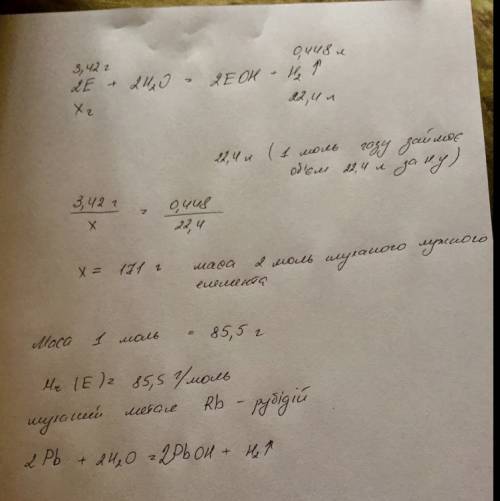 3,42 г 0,448 л
2E + 2H₂O = 2EOH = H₂ ↑
x г 22,4 л
22,4 л ( 1 моль газу займає
об'єм 22,4 л за н у)
3,42 г / x = 0,448 / 22,4
x = 171 г маса 2 моль шуканого лужного
елемента
Маса 1 моль = 85,5 г
Mr (E) = 85,5 г/моль
шуканий метал Rb - рубідій
2 Pb + 2H₂O = 2PbOH + H₂↑